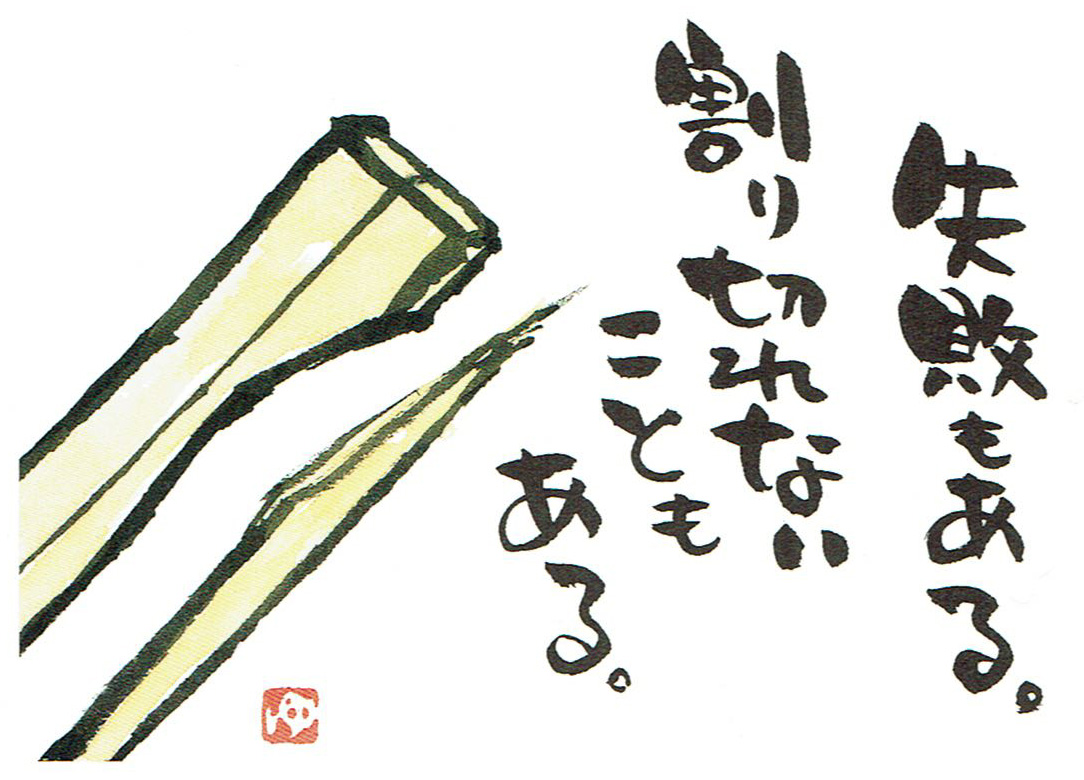 失敗もある。
割り切れない
ことも
ある。